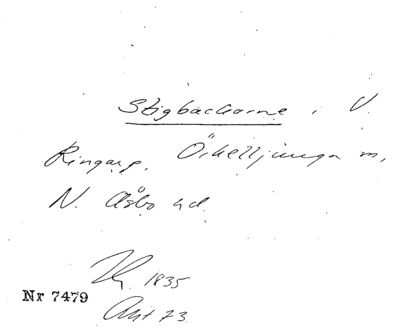 Stigbackarne i V.
Ringarp, Örkelljunga m,
N. Åsbo hd
1835
Nr 7479
Akt 73